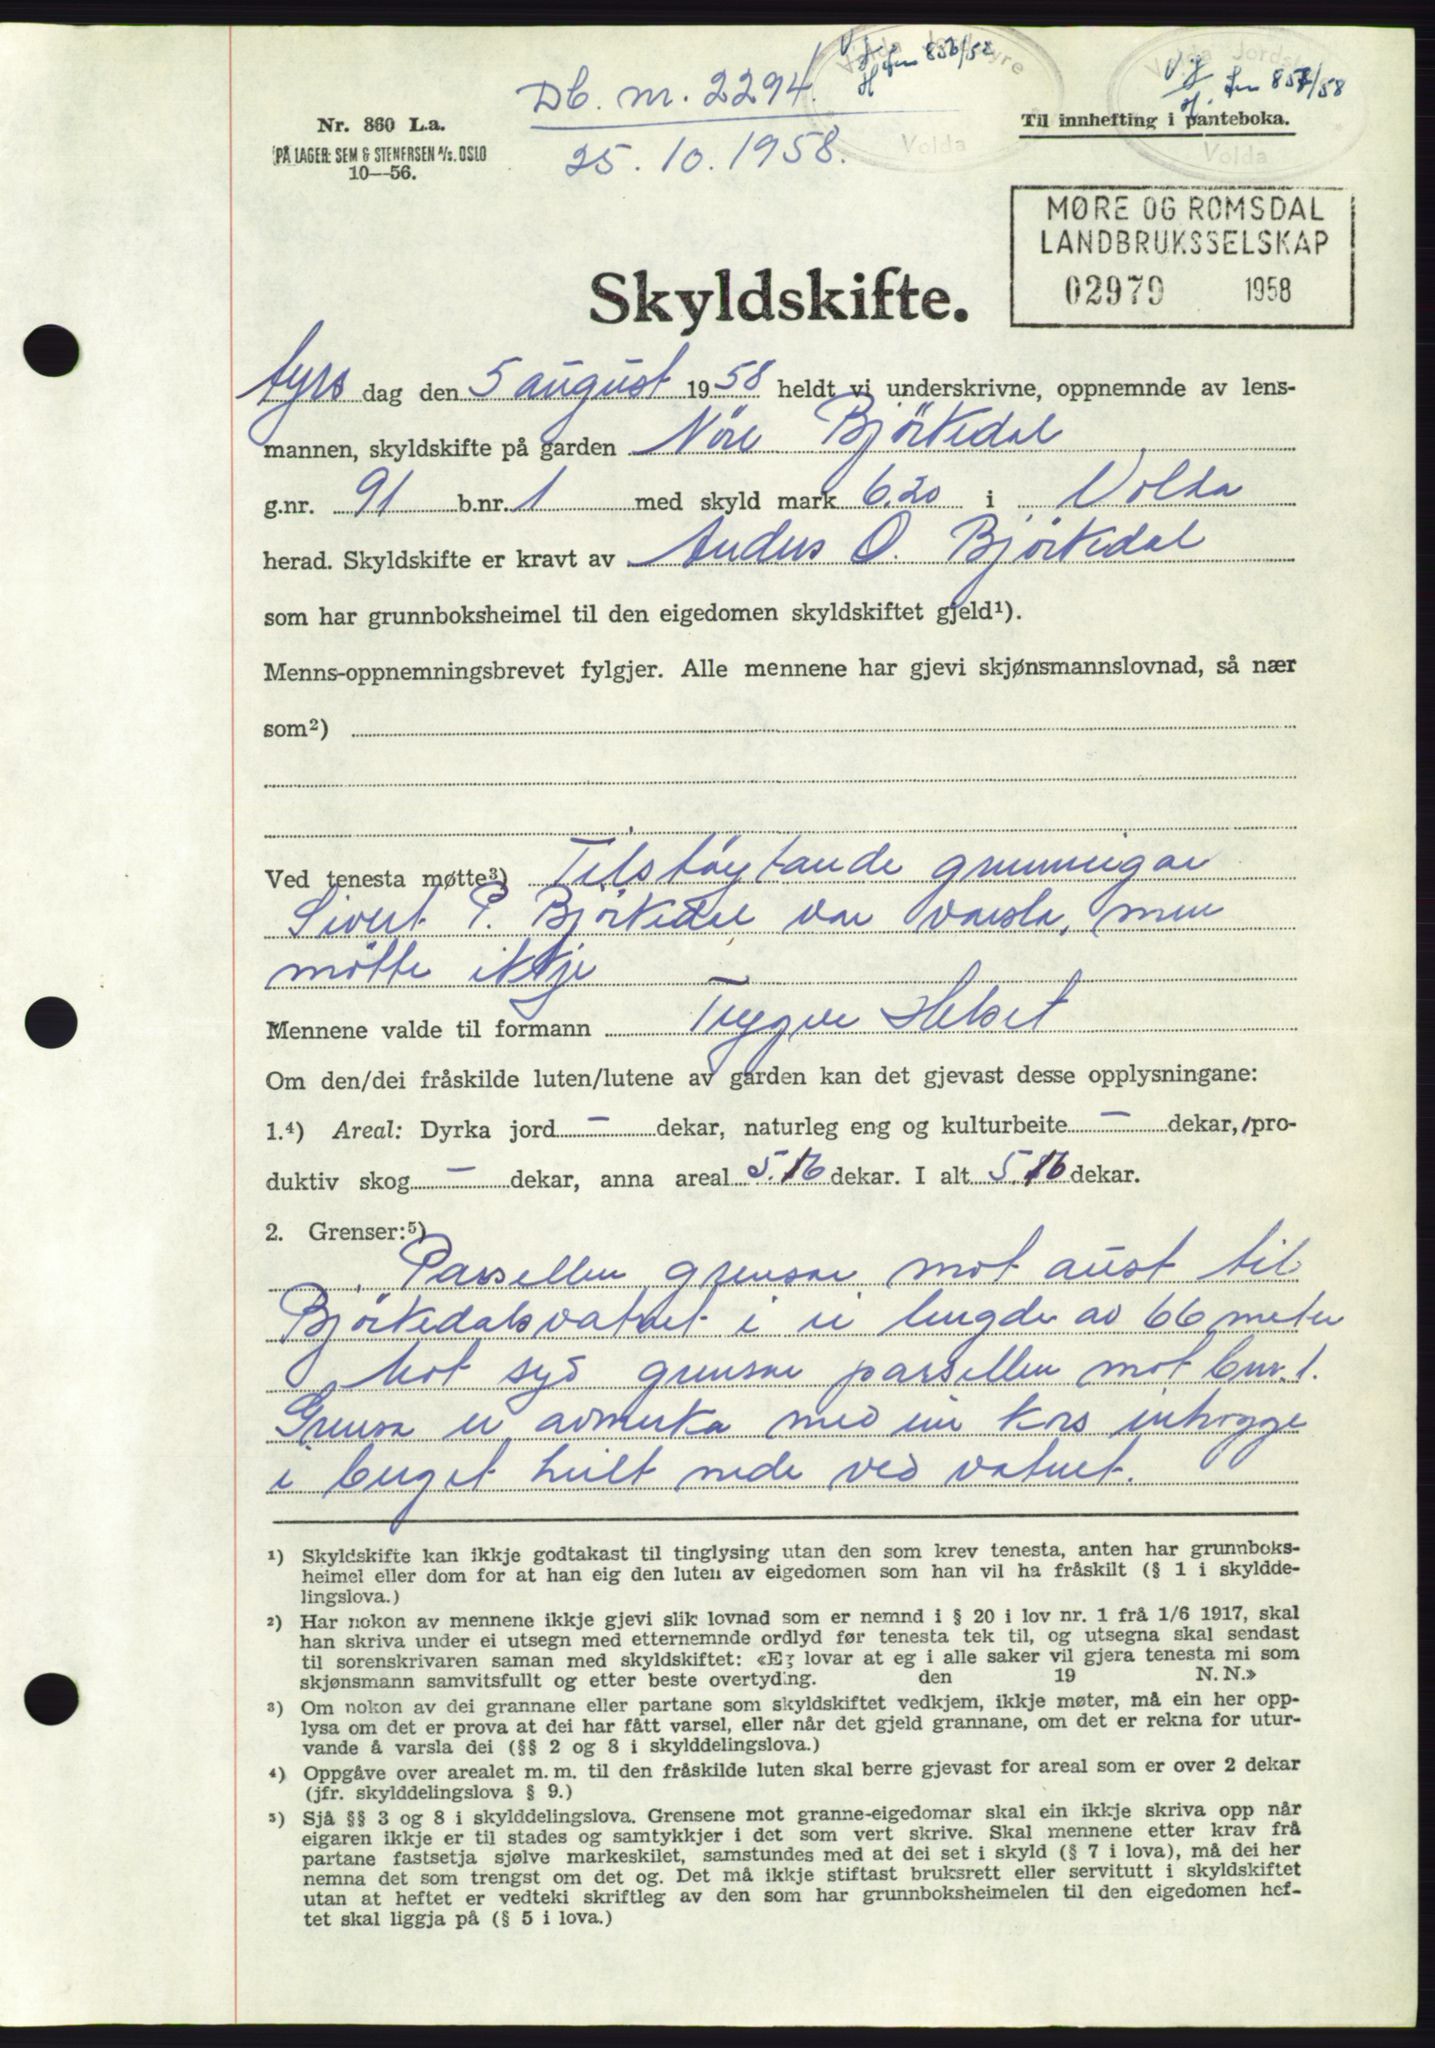 Db. nr. 2294.
25. 10. 1958.
Volda Jordstyre
Volda
856/58
Volda Jordst
Volda
857/58
Nr. 360 L.a.
PÅ LAGER: SEM & STENERSEN A/S. OSLO
10—56.
Til innhefting i panteboka.
MØRE OG ROMSDAL
LANDBRUKSSELSKAP
02979 1958
Skyldskifte.
tyrs dag den 5 august 1958 heldt vi underskrivne, oppnemnde av lens-
mannen, skyldskifte på garden Nöre Björkedal
g.nr. 91 b.nr. 1 med skyld mark 6.20 i Volda
herad. Skyldskifte er kravt av Anders O. Björkedal
som har grunnboksheimel til den eigedomen skyldskiftet gjeld¹).
Menns-oppnemningsbrevet fylgjer. Alle mennene har gjevi skjønsmannslovnad, så nær
som²)
Ved tenesta møtte³) Tilstøytande grunneigar
Sivert P. Björkedal var varsla, men
mötte ikkje
Mennene valde til formann Trygve Helset
Om den/dei fråskilde luten/lutene av garden kan det gjevast desse opplysningane:
1.⁴) Areal: Dyrka jord — dekar, naturleg eng og kulturbeite — dekar, pro-
duktiv skog — dekar, anna areal 5.16 dekar. I alt 5.16 dekar.
2. Grenser:⁵)
Parsellen grensar mot aust til
Björkedalsvatnet i ei lengde av 66 meter
Mot syd grensar parsellen mot bnr. 1.
Grensa er avmerka med ein kros inhogge
i berget heilt nede ved vatnet.
¹) Skyldskifte kan ikkje godtakast til tinglysing utan den som krev tenesta, anten har grunnboks-
heimel eller dom for at han eig den luten av eigedomen som han vil ha fråskilt (§ 1 i skyldde-
lingslova.)
²) Har nokon av mennene ikkje gjevi slik lovnad som er nemnd i § 20 i lov nr. 1 frå 1/6 1917, skal
han skriva under ei utsegn med etternemnde ordlyd før tenesta tek til, og utsegna skal sendast
til sorenskrivaren saman med skyldskiftet: «Eg lovar at eg i alle saker vil gjera tenesta mi som
skjønsmann samvitsfullt og etter beste overtyding. den 19 N. N.»
³) Om nokon av dei grannane eller partane som skyldskiftet vedkjem, ikkje møter, må ein her opp-
lysa om det er prova at dei har fått varsel, eller når det gjeld grannane, om det er rekna for utur-
vande å varsla dei (§§ 2 og 8 i skylddelingslova.)
⁴) Oppgåve over arealet m. m. til den fråskilde luten skal berre gjevast for areal som er over 2 dekar
(jfr. skylddelingslova § 9.)
⁵) Sjå §§ 3 og 8 i skylddelingslova. Grensene mot granne-eigedomar skal ein ikkje skriva opp når
eigaren ikkje er til stades og samtykkjer i det som vert skrive. Skal mennene etter krav frå
partane fastsetja sjølve markeskilet, samstundes med at dei set i skyld (§ 7 i lova), må dei her
nemna det som trengst om det og. Det må ikkje stiftast bruksrett eller servitutt i skyldskiftet
utan at heftet er vedteki skriftleg av den som har grunnboksheimelen til den eigedomen hef-
tet skal liggja på (§ 5 i lova.)